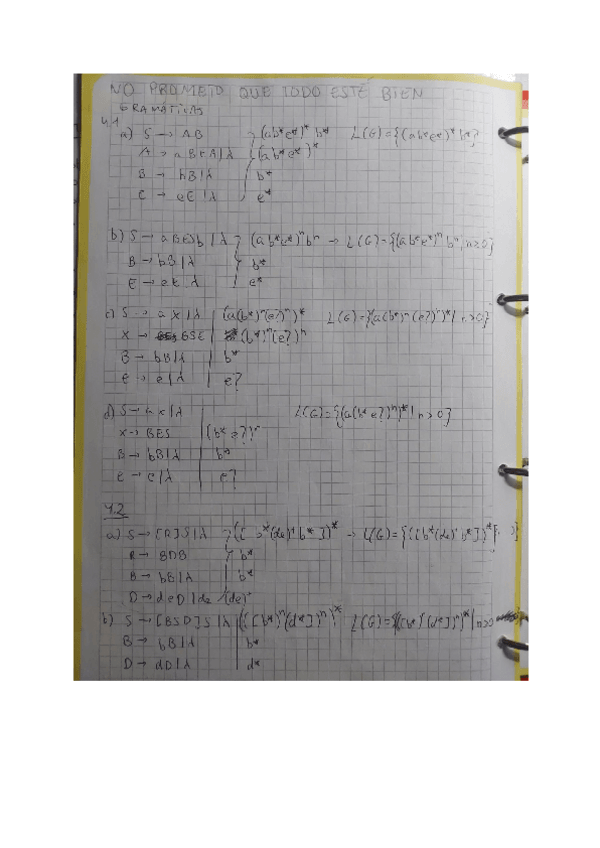 NO PROMETO QUE TODO ESTÉ BIEN
GRAMÁTICAS
4.1
a) S → AB (ab*e*)* b* L(G)={(ab*e*)* b*}
A → aBEA|λ (ab*e*)*
B → bB|λ b*
E → eE|λ e*
b) S → aBESb|λ (ab*e*)ⁿbⁿ → L(G)={(ab*e*)ⁿ bⁿ, n≥0}
B → bB|λ b*
E → eE|λ e*
c) S → aX|λ (a(b*)ⁿ(e?)ⁿ)* L(G)={(a(b*)ⁿ(e?)ⁿ)* | n>0}
X → BSE (b*)ⁿ(e?)ⁿ
B → bB|λ b*
E → e|λ e?
d) S → ax|λ L(G)={(a(b*e?)ⁿ)* | n>0}
X → BES (b*e?)ⁿ
B → bB|λ b*
E → e|λ e?
4.2
a) S → [R]S|λ ([b*(de)⁺b*])* → L(G)={([b*(de)⁺b*])*
R → BDB b*
B → bB|λ b*
D → deD|de (de)⁺
b) S → [BSD]S|λ (([b*)ⁿ(d*])ⁿ)* L(G)={(([b*)ⁿ(d*])ⁿ)* | n≥0
B → bB|λ b*
D → dD|λ d*